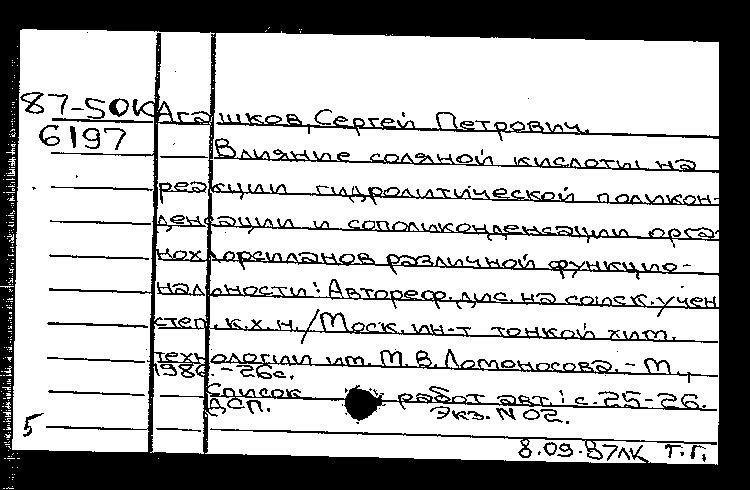 87-50К Агашков, Сергей Петрович.
6197
Влияние соляной кислоты на
реакции гидролитической поликон-
денсации и сополиконденсации орга-
нохлорсиланов различной функцио-
нальности: Автореф. дис. на соиск. учен
степ. к.х.н. / Моск. ин-т тонкой хим.
технологии им. М.В. Ломоносова. - М.,
1986. - 26с.
Список работ авт.: с. 25-26.
ДСП. Экз. N 02.
5
8.09.87ЛК Т.Г.